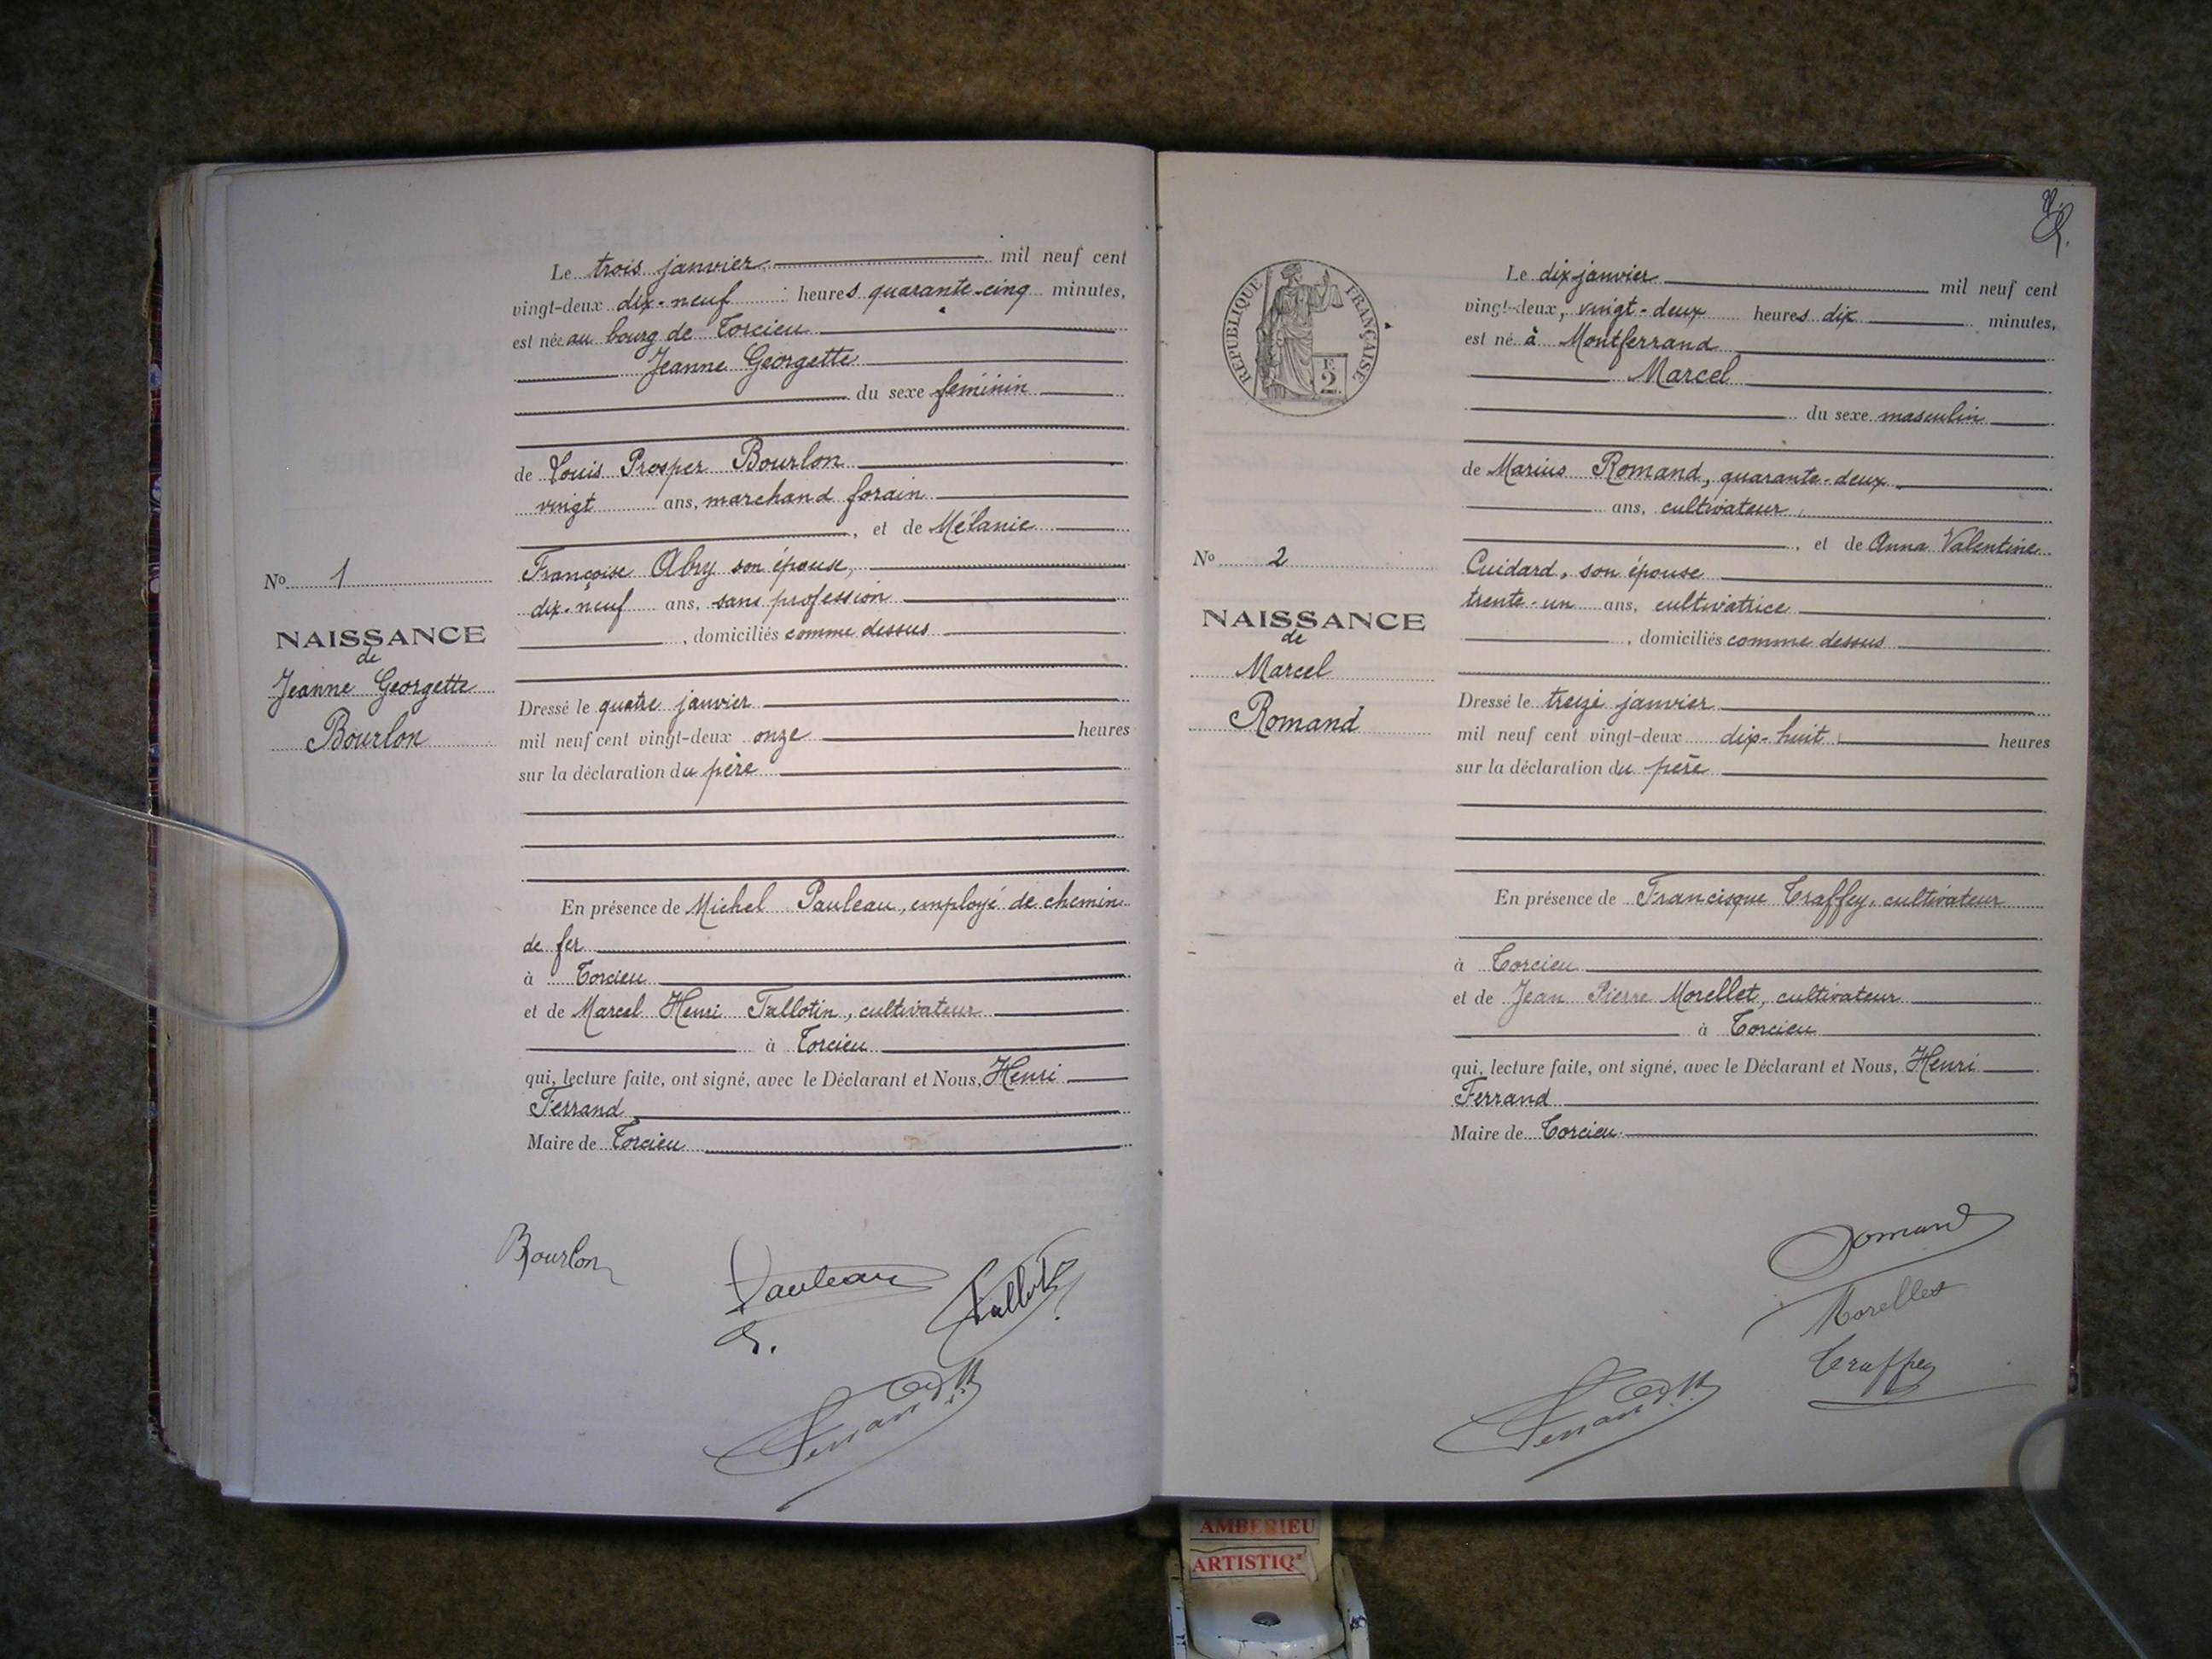 Le trois janvier mil neuf cent
vingt-deux dix-neuf heures quarante-cinq minutes,
est née au bourg de Torcieu
Jeanne Georgette
du sexe feminin
de Louis Prosper Bourlon
vingt ans, marchand forain
, et de Mélanie
Françoise Abry son épouse,
dix-neuf ans, sans profession
, domiciliés comme dessus
Dressé le quatre janvier
mil neuf cent vingt-deux onze heures
sur la déclaration du père
En présence de Michel Pauleau, employé de chemin
de fer
à Torcieu
et de Marcel Henri Tallotin, cultivateur
à Torcieu
qui, lecture faite, ont signé, avec le Déclarant et Nous, Henri
Ferrand
Maire de Torcieu
No 1
NAISSANCE
de
Jeanne Georgette
Bourlon
Bourlon
Pauleau
Ferrand
RÉPUBLIQUE FRANÇAISE
F.
2
Le dix janvier mil neuf cent
vingt-deux, vingt-deux heures dix minutes,
est né à Montferrand
Marcel
du sexe masculin
de Marius Romand, quarante-deux
ans, cultivateur,
, et de Anna Valentine
Cuidard, son épouse
trente-un ans, cultivatrice
, domiciliés comme dessus
Dressé le treize janvier
mil neuf cent vingt-deux dix-huit heures
sur la déclaration du père
En présence de Francisque Traffey, cultivateur
à Torcieu
et de Jean Pierre Morellet, cultivateur
à Torcieu
qui, lecture faite, ont signé, avec le Déclarant et Nous, Henri
Ferrand
Maire de Torcieu
No 2
NAISSANCE
de
Marcel
Romand
Romand
Morellet
Traffey
Ferrand
AMBERIEU
ARTISTIQ